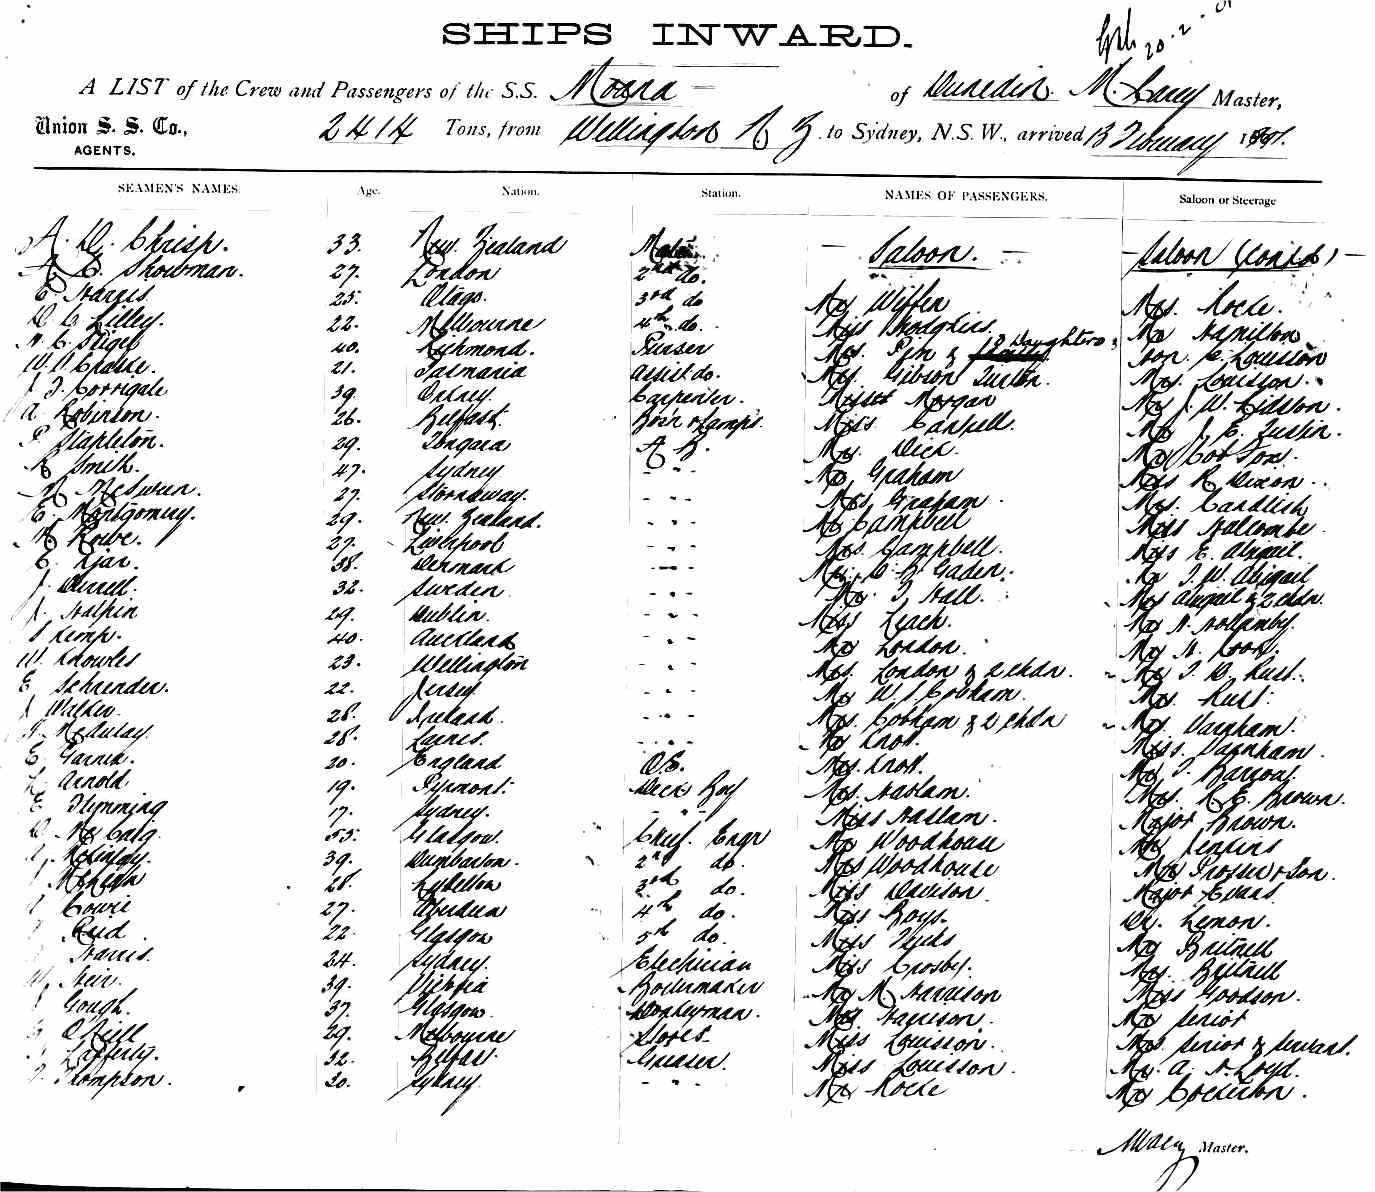 20.2.01
SHIPS INWARD.
A LIST of the Crew and Passengers of the S.S. Moana of Dunedin. M. Carey Master,
Union S. S. Co., 2414 Tons, from Wellington N Z. to Sydney, N.S.W., arrived 13 February
AGENTS.
SEAMEN'S NAMES. Age. Nation. Station. NAMES OF PASSENGERS. Saloon or Steerage
A. D. Chrisp. 33. New Zealand Saloon. Saloon (Contd)
Showman. 27. London 2nd do.
E. Harris. 25. Otago. 3rd do Mr Wiffen Mrs. Rocke.
Lilley. 22. Melbourne 4th do. Miss Hodgkins. Mr Hamilton
40. Richmond. Purser Mrs. Pim & Daughters Hon. C. Louisson
W. 21. Tasmania Assist do. Mrs. Gibson Mrs. Louisson.
J. Corrigale 39. Orkney. Carpenter. Misses Morgan Mr J. W.
A. Robinson. 26. Belfast. Bos'n & Lamps. Miss Campbell. Mr J. E. Justin.
Stapleton. 29. A B. Mr. Dick. Mr
Smith. 47. Sydney - - - Mr Graham Miss R Dixon.
M McSwen. 27. Stornoway. - - - Mrs Graham Mrs. Candlish
E. Montgomery. 29. New Zealand. - - - Mr Campbell Miss Halcombe
Rowe. 27. Liverpool - - - Mrs. Campbell. Miss E. Abigail.
E. Kjar. 38. Denmark - - - Gaden. Mr J. W. Abigail
J. 32. Sweden - - - Mr. J. Hall. Mrs Abigail & 2 chdn.
J. Halpin 29. Dublin. - - - Miss Leach. Mr H. Hollamby.
Kemp. 40. Auckland - - - Mr London. Mr H. Cook.
W. Knowles 23. Wellington - - - Mrs. London & 2 chdn. Mr J. D. Rust.
E Schrender. 22. Jersey. - - - Mr W. J Cobham. Mrs. Rust.
J Walker. 28. Ireland. - - - Mrs. Cobham & 2 chdn Mrs. Varnham.
McAulay. 28. - - - Mr Knott. Miss. Varnham.
E. Garner. 20. England O.S. Mrs. Knott. Mr J. Barrow.
Arnold 19. Pyrmont. Deck Boy Mrs. Haslam. Mrs. R. E. Brown.
E Flemming 17. Sydney. - - Miss Haslam. Major Brown.
D. McCaig. 55. Glasgow. Chief. Engr Mr Woodhouse Mr Jenkins
McKinlay. 39. Dumbarton. 2nd do. Mrs Woodhouse Mr Prosser & Son.
McLean 28. Lyttelton 3rd do. Miss Davidson. Major Evans.
Cowie 27. Aberdeen 4th do. Miss Boys. Dr. Lemon.
Reid 22. Glasgow 5th do. Miss Mr Britnell
Harris. 24. Sydney. Electrician Miss Crosby. Mrs. Britnell
Weir. 39. Victoria Boilermaker Mr M. Harrison Miss Goodson.
Gough. 37. Glasgow. Donkeyman. Mrs Harrison. Mr Senior
O'Neill 29. Melbourne Stores. Miss Louisson. Mrs Senior & Servant.
Lafferty. 32. Belfast. Greaser. Miss Louisson. Mr. A. H. Loyd.
Thompson. 30. Sydney. - - - Mr Rocke Mr Cockerton.
Master.